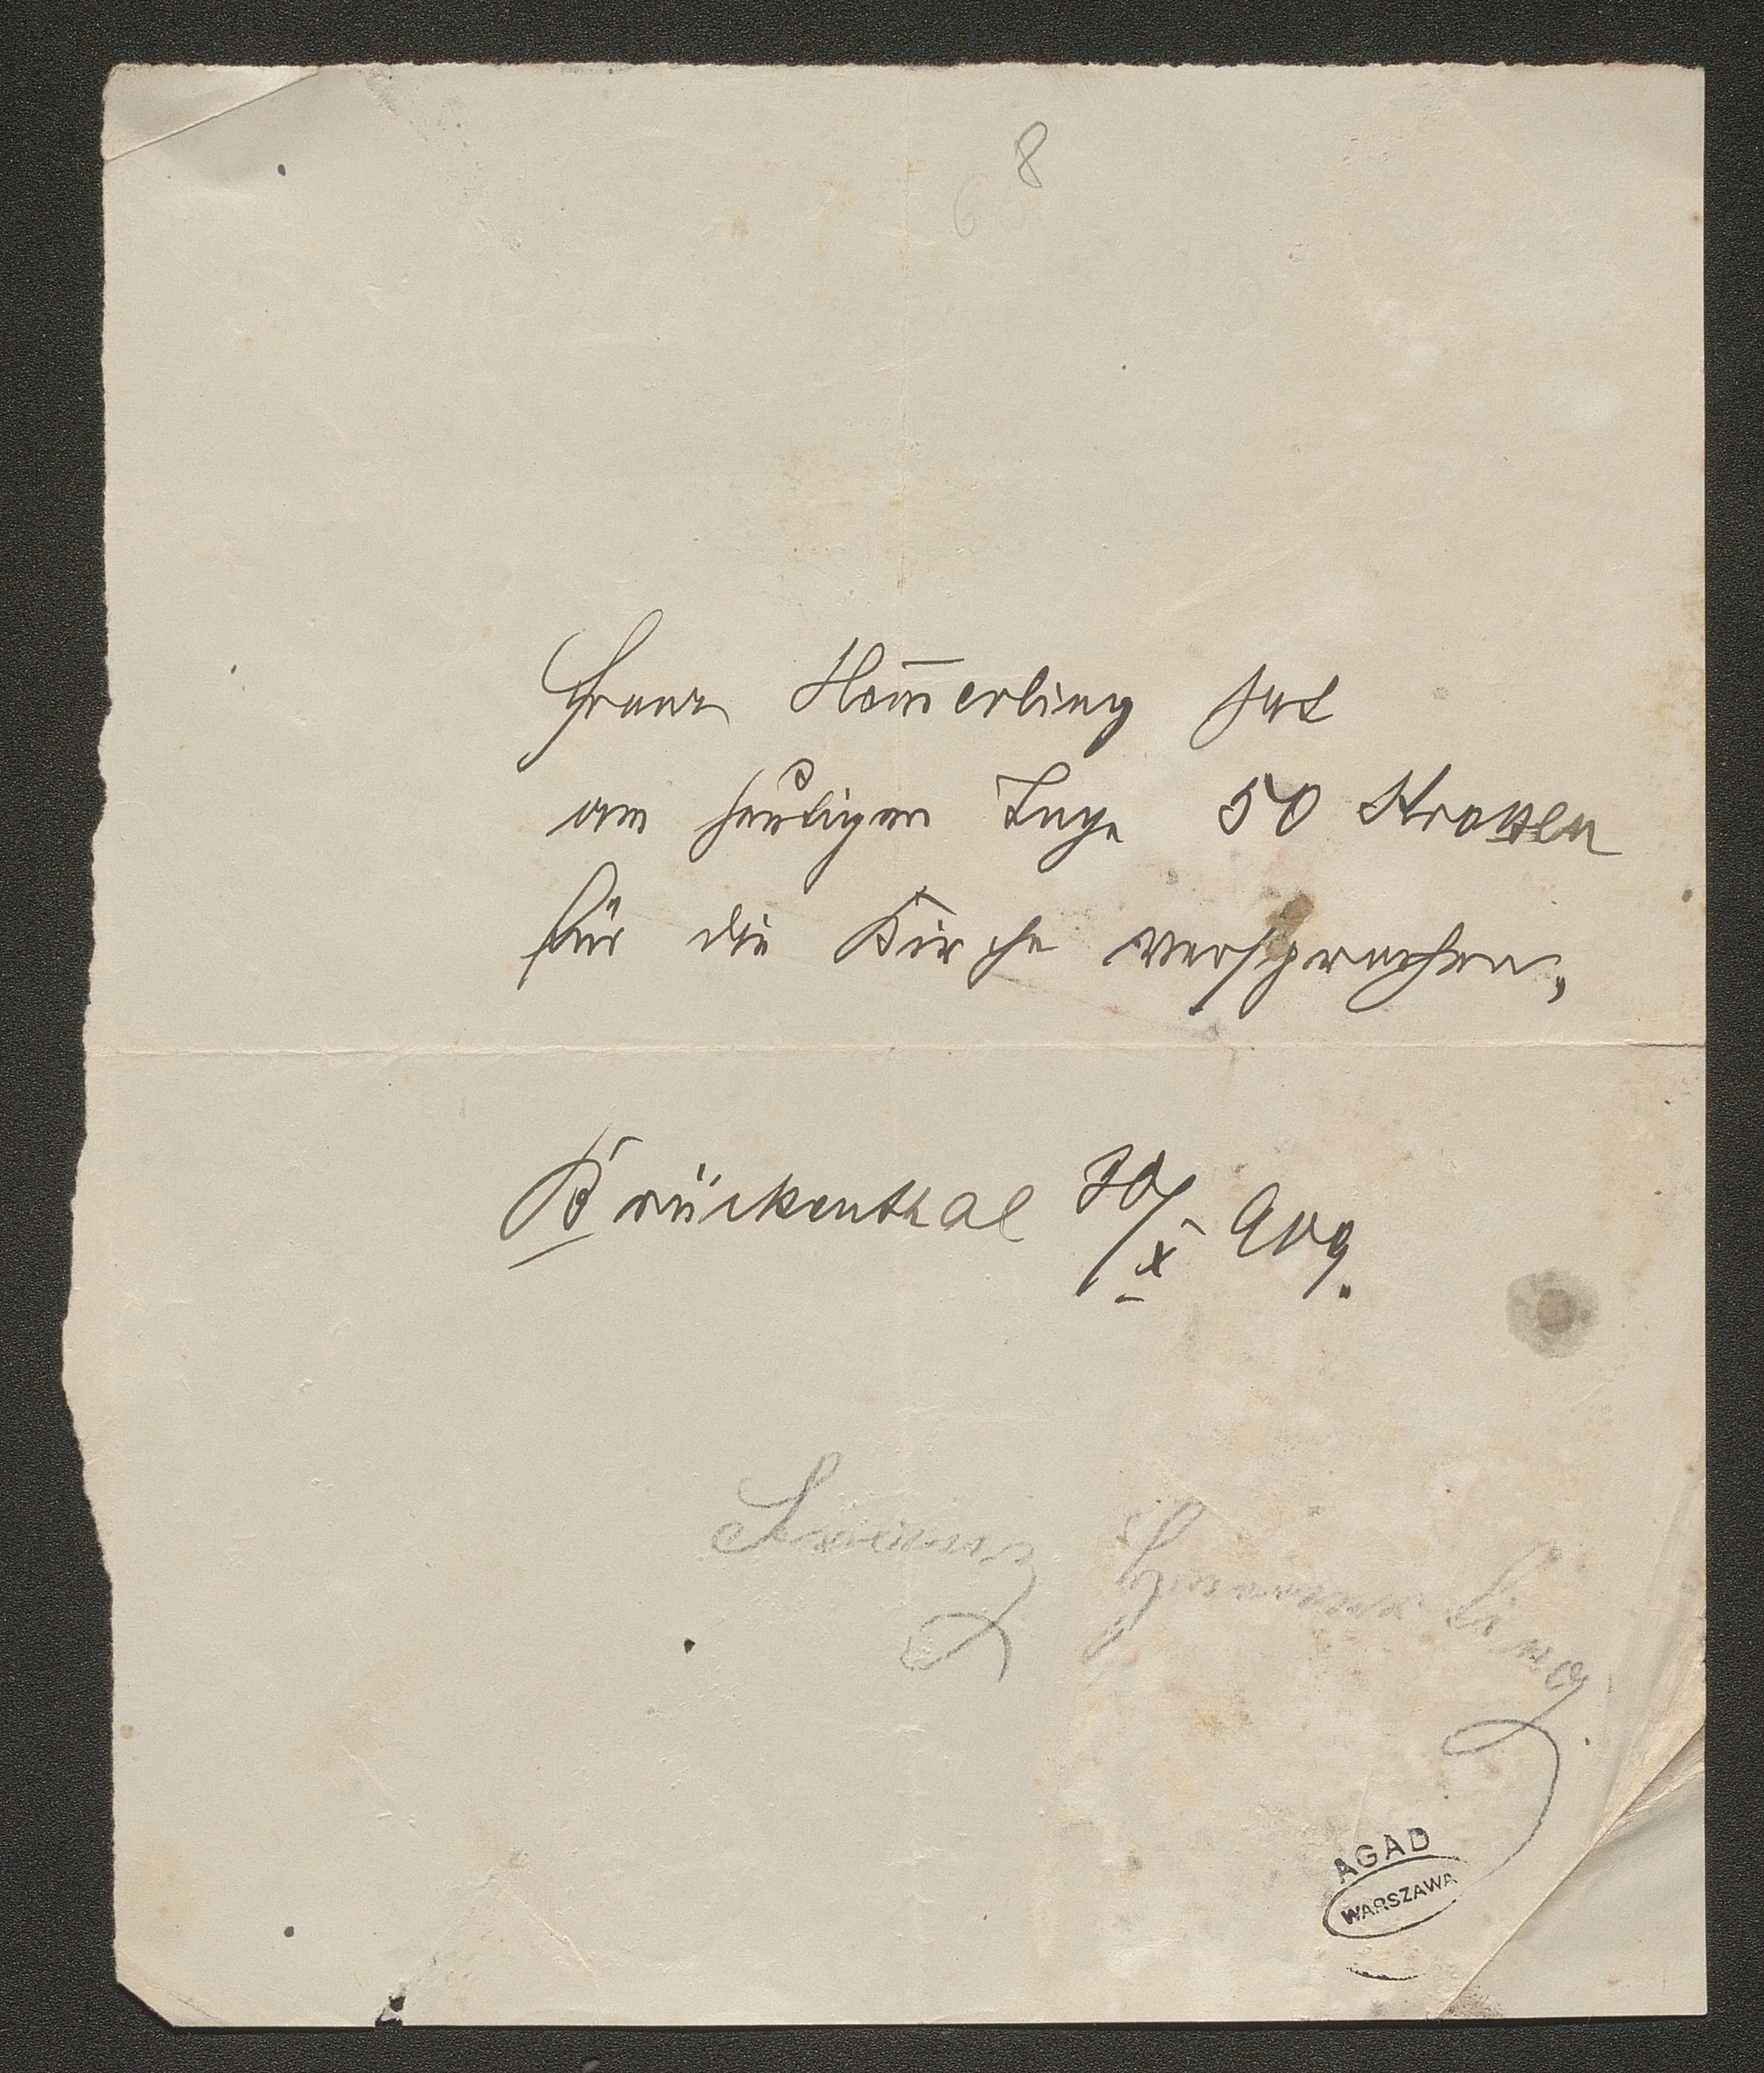 8
6
Franz Hom̄erling hat
am heutigen Tage 50 Kronen
für die Kirche versprochen,
Brückenthal 30/X 909.
Franz Hammerling
AGAD
WARSZAWA